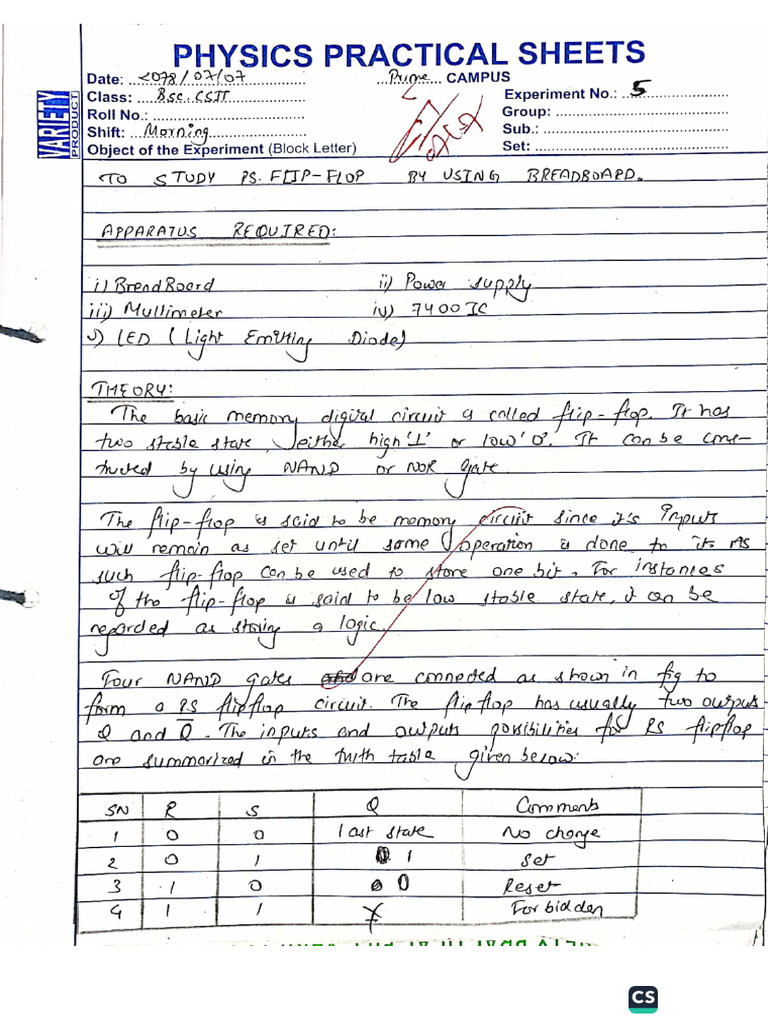 PHYSICS PRACTICAL SHEETS
Date: 2078/07/07 Prime CAMPUS
Class: Bsc.CSIT Experiment No.: 5
Roll No.: Group:
Shift: Morning Sub.:
Object of the Experiment (Block Letter) Set:
VARIETY
PRODUCT
TO STUDY RS. FLIP-FLOP BY USING BREADBOARD.
APPARATUS REQUIRED:
i) BreadBoard ii) Power supply
iii) Mullimeter iv) 7400 IC
v) LED (Light Emitting Diode)
THEORY:
The basic memory digital circuit is called flip-flop. It has
two stable state, either high '1' or low '0'. It can be cons-
tructed by using NAND or NOR gate.
The flip-flop is said to be memory circuit since it's Inputs
will remain as set until some operation is done to it. As
such flip-flop can be used to store one bit. For instances
if the flip-flop is said to be low stable state, it can be
regarded as storing a logic.
Four NAND gates are connected as shown in fig to
form a RS flipflop circuit. The flip flop has usually two outputs
Q and Q̅. The inputs and outputs possibilities for RS flipflop
are summarized in the truth table given below:
SN R S Q Comments
1 0 0 last state No change
2 0 1 1 Set
3 1 0 0 Reset
4 1 1 Forbidden
CS